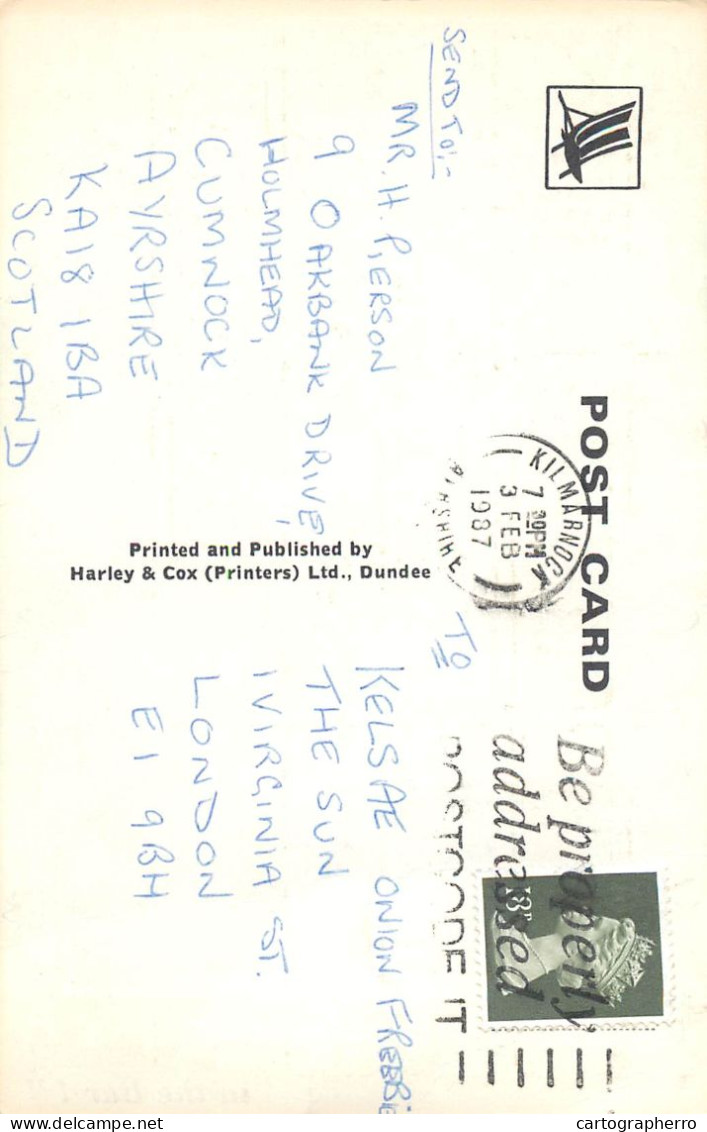 POST CARD
KILMARNOCK
7 30PM
3 FEB
1987
Be properly
addressed
POSTCODE IT
SEND TO:-
MR. H. PIERSON
9 OAKBANK DRIVE,
HOLMHEAD,
CUMNOCK
AYRSHIRE
KA18 1BA
SCOTLAND
Printed and Published by
Harley & Cox (Printers) Ltd., Dundee
TO
KELSAE ONION FREEBIE
THE SUN
1 VIRGINIA ST.
LONDON
E1 9BH
cartographerro